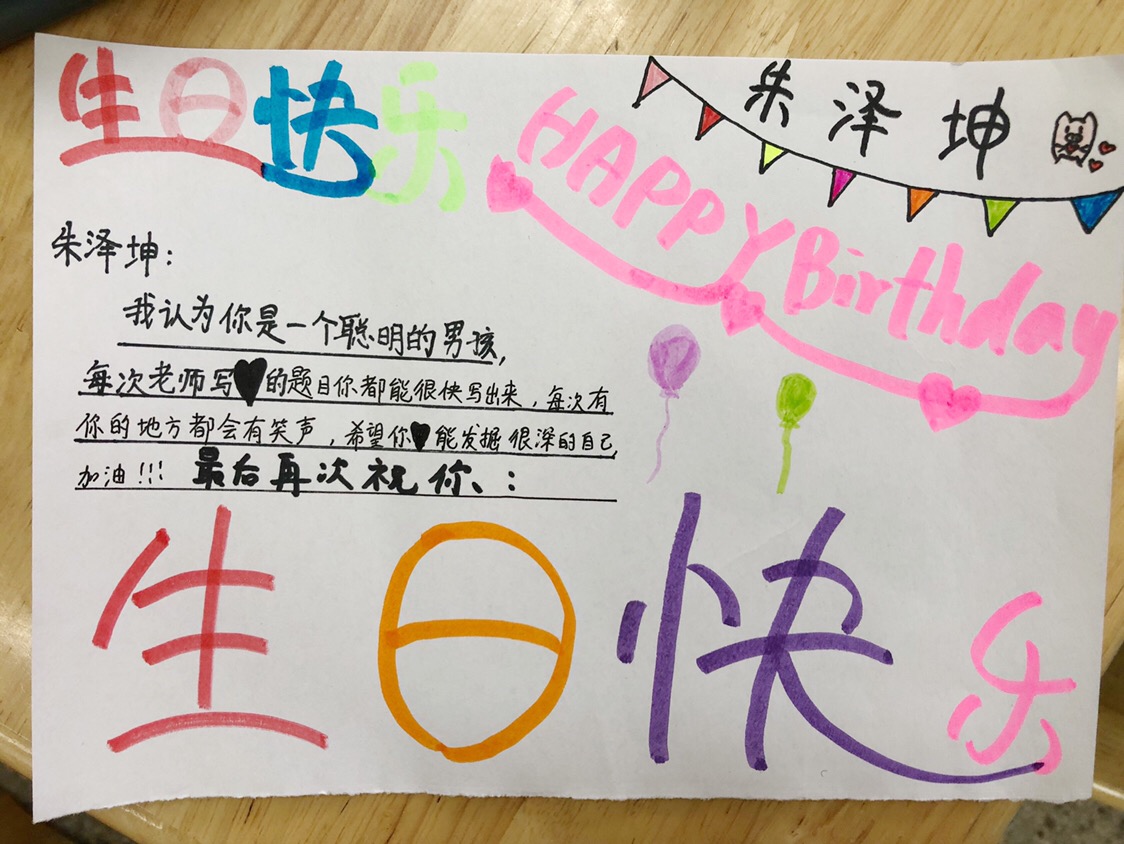 生日快乐
朱泽坤
HAPPY Birthday
朱泽坤：
我认为你是一个聪明的男孩，
每次老师写的题目你都能很快写出来，每次有
你的地方都会有笑声，希望你能发掘很深的自己，
加油！！！最后再次祝你：
生日快乐